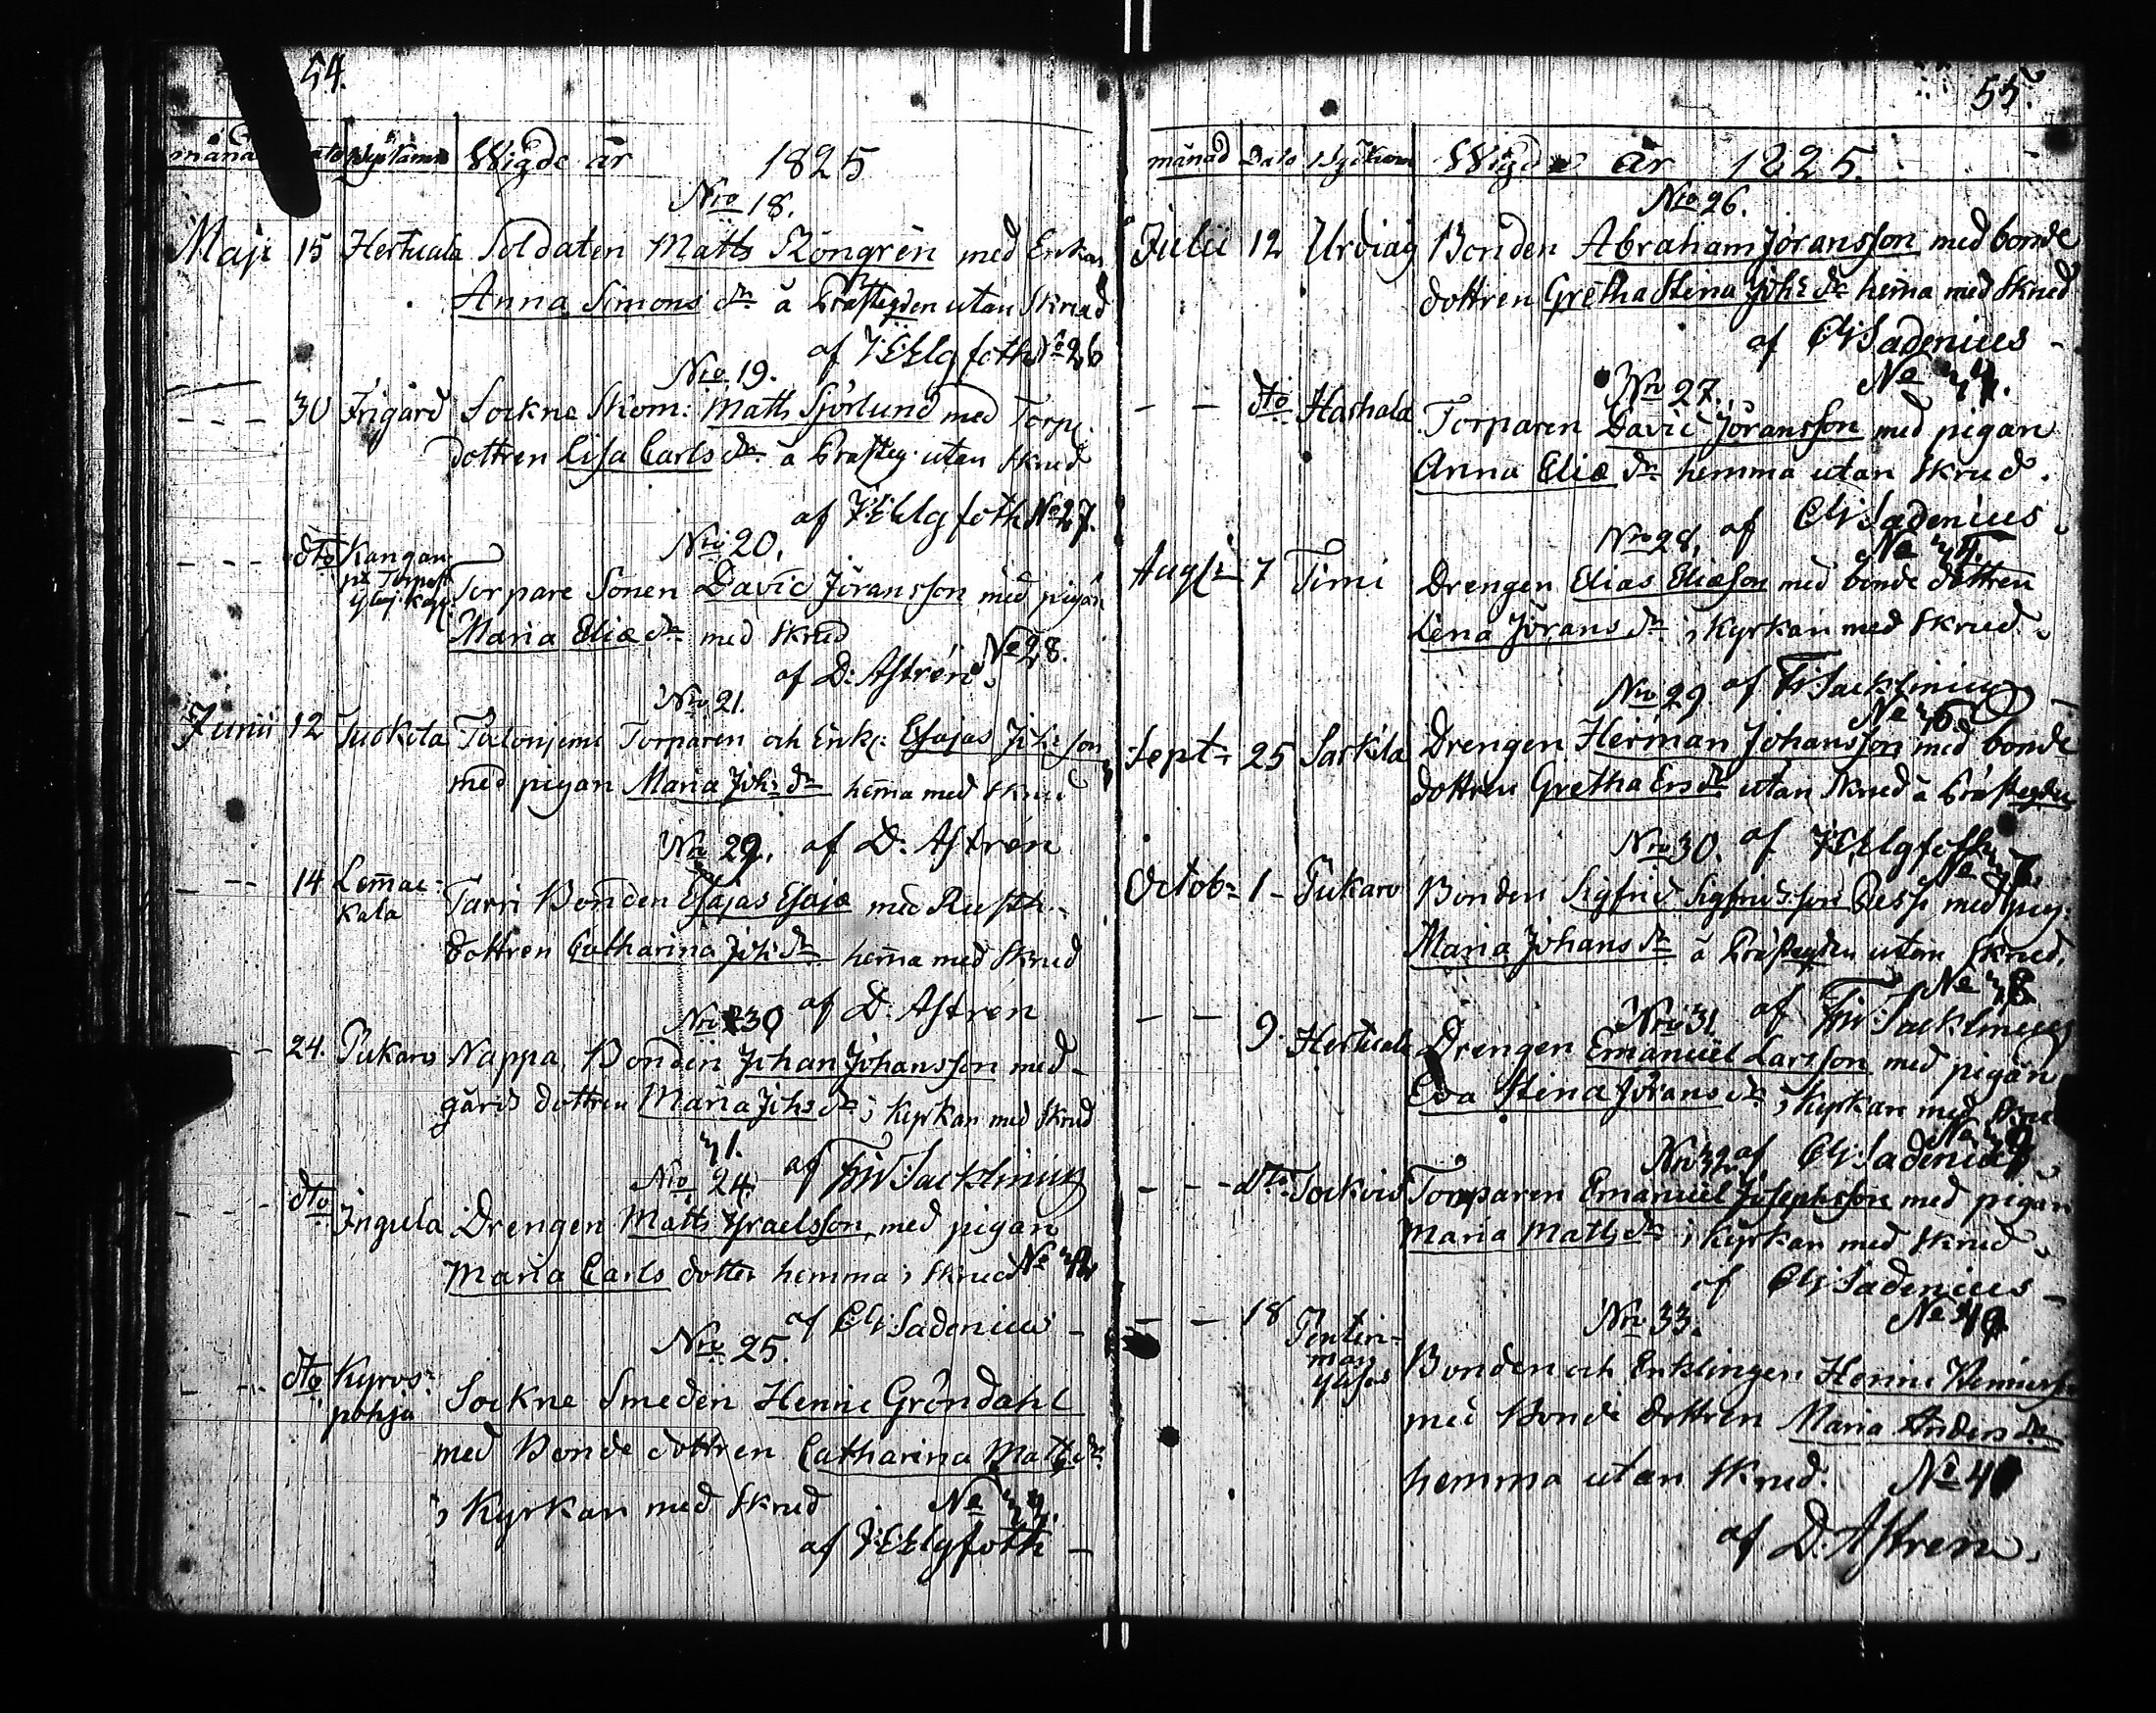 54.
månad dato Wigde år 1825
Nro 18.
Maji 15 Hertuala Soldaten Matts Röngrén med Enkan
Anna Simons dr å Prästegden utan Skrud
af J:E:Elgfoth No 26
Nro 19.
- - - 30 Frigård Sockne Skom: Matts Sjörlund med Torp:
dottren Lisa Carls dr å Prästeg. utan Skrud
af J:E:Elgfoth No 27.
Nro 20.
- - - dto Kangan
Torpare Sonen David Jöransson med pigan
Maria Eliæ dr med Skrud
No 28.
af D: Astrén
Nro 21.
Junii 12 Juckola Torparen och Enkl: Esajas Joh:son
med pigan Maria Joh: dr hemma med Skrud
Nro 29. af D: Astrén
- - - 14 Lemmac-
kala
Tarri Bonden Esajas Esaja med Rusth.
dottren Catharina Joh: dr hemma med Skrud
Nro 30 af D: Astrén
- - 24. Pukaro Nappa Bonden Johan Johansson med
gårds dottren Maria Johs dr i Kyrkan med Skrud
31.
Nro 24. af Fr:W:Sacklinius
- - - dto Ingula Drengen Matts Israelsson med pigan
Maria Carls dotter hemma i Skrud No 32
af C:G:Sadenius
Nro 25.
- - - dto Kyros-
pohja
Sockne Smeden Henric Gröndahl
med Bonde dottren Catharina Matts dr
i Kyrkan med Skrud No 33.
af J:E:Elgfoth
55.
månad Dato Wigde år 1825.
Nro 26.
Julii 12 Urdiag Bonden Abraham Jöransson med bonde
dottren Gretha Stina Joh: dr hemma med Skrud
af C:G:Sadenius
Nro 27. No 34.
- - dto Haihala Torparen David Jöransson med pigan
Anna Eliæ dr hemma utan Skrud.
af C:G:Sadenius
Nro 28. No 35.
Augti 7 Timi Drengen Elias Eliæson med bonde dottren
Lena Jörans dr i Kyrkan med Skrud
Nro 29. af Fr:Sacklinius
No 36.
Sept: 25 Sarkila Drengen Herman Johansson med bonde
dottren Gretha Ers dr utan Skrud å Prästegden
Nro 30. af J:E:Elgfoth
No 37
Octob: 1 Pukaro Bonden Sigfrid Sigfridsson Pessi med pig:
Maria Johans dr å Prästegden utan Skrud.
No 38
Nro 31. af Fr:W:Sacklinius
- - 9. Hertuala Drengen Emanuel Larsson med pigan
Eva Stina Jörans dr i Kyrkan med Skru
No 39
Nro 32. af C:G:Sadenius
- - - dto Sockvis Torparen Emanuel Josephsson med pigan
Maria Matts dr i Kyrkan med Skrud
af C:G:Sadenius
Nro 33. No 40
- - 18 Bonden och Enklingen Henric Henricss
med Bonde dottren Maria Anders dr
hemma utan Skrud. No 41
af D:Astren.